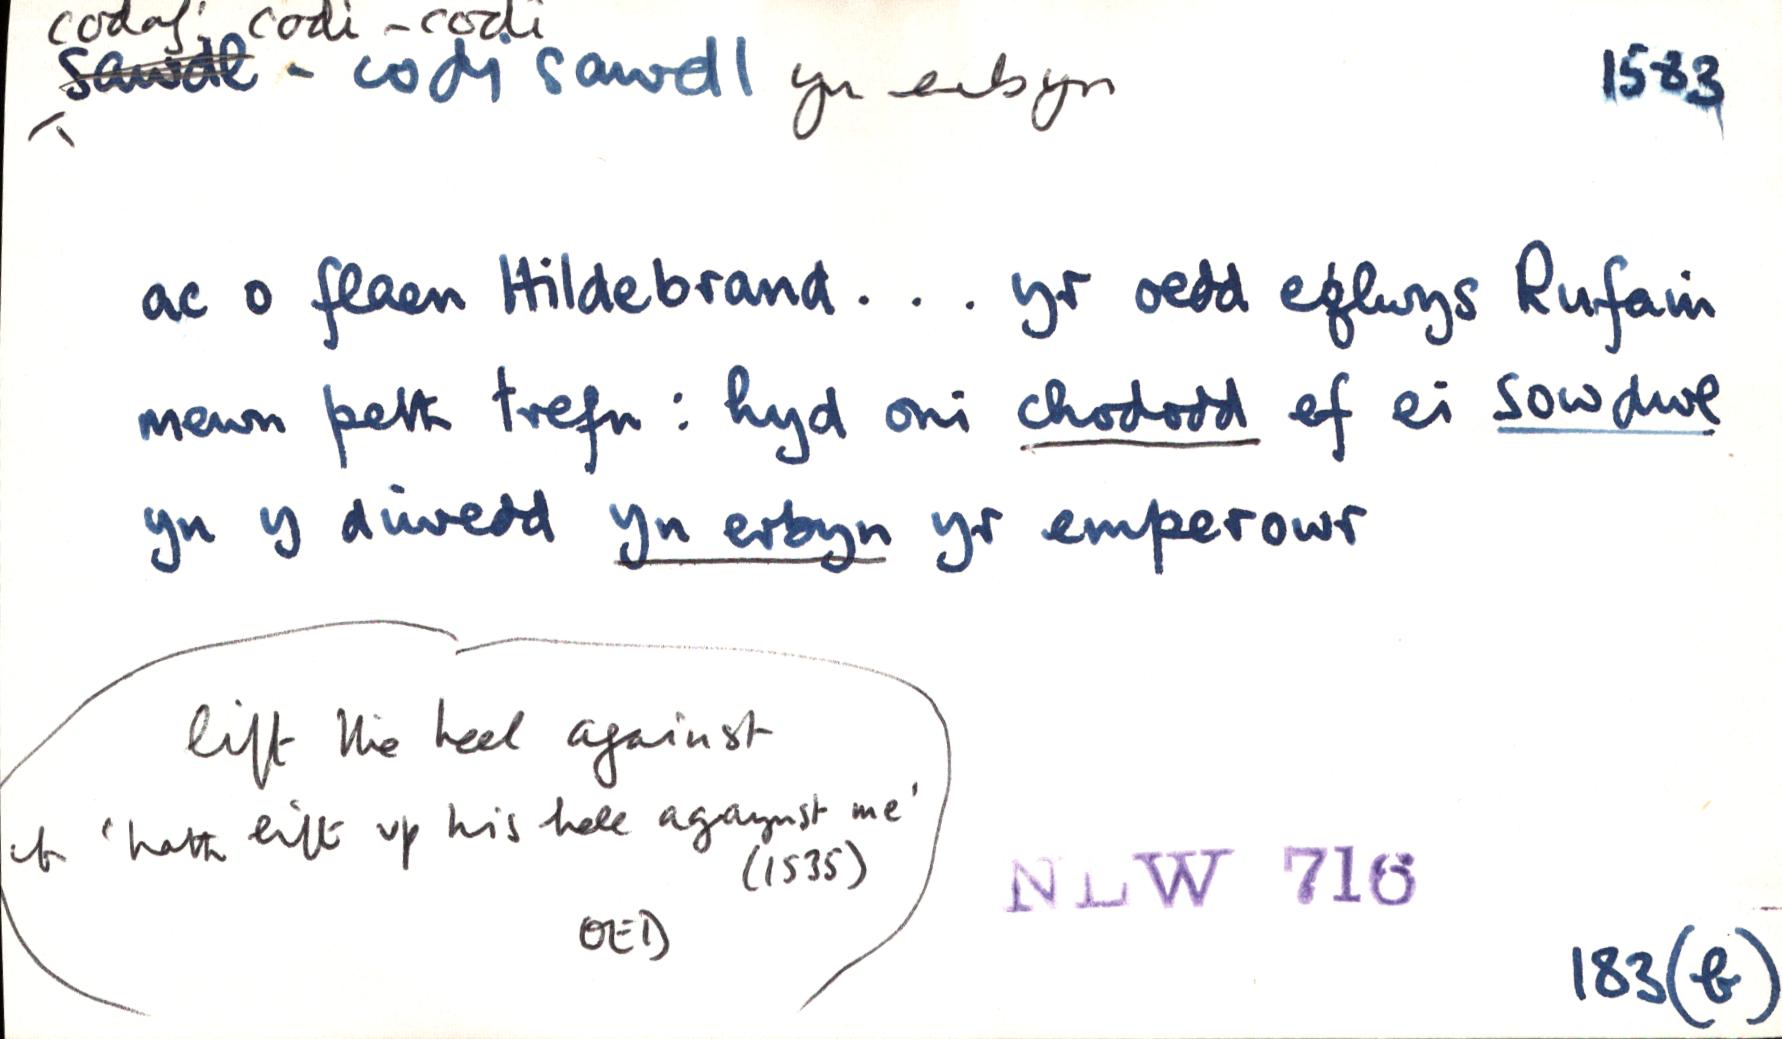 codaf: codi - codi
sawdl - codi sawdl yn erbyn
1583
ac o flaen Hildebrand . . . yr oedd eglwys Rufain
mewn peth trefn : hyd oni chododd ef ei sowdwl
yn y diwedd yn erbyn yr emperowr
lift the heel against
cf. 'hath lift up his hele agaynst me'
(1535)
OED
NLW 716
183(b)